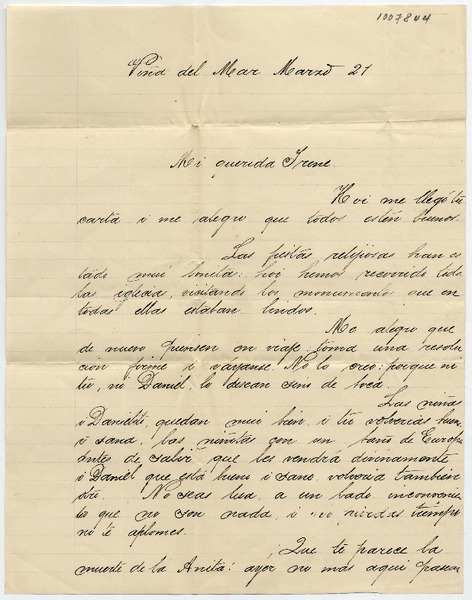 1007844
Viña del Mar Marzo 21
Mi querida Irene.
Hoi me llegó tu
carta i me alegro que todos estén buenos.
Las fiestas relijiosas han es
tado mui bonita: hoi hemos recorrido toda
las iglesia, visitando los monumento que en
todas ellas estaban lindos.
Me alegro que
de nuevo piensen en viaje: toma una resolu
cion firme i váyanse. No lo creo: porque ni
tú, ni Daniel, lo desean sino de boca.
Las niñas
i Danielito, quedan mui bien, i tú volverias buen
i sana, las niñitas con un baño de Europa
ántes de salir, que les vendrá divinamente
i Daniel que está bueno i sano, volveria tambien
otro. No seas lesa, a un lado, inconvenien
tes que no son nada, i no pierdas tiempo
no te aplomes.
¡Que te parece la
muerte de la Anita! ayer no más aquí